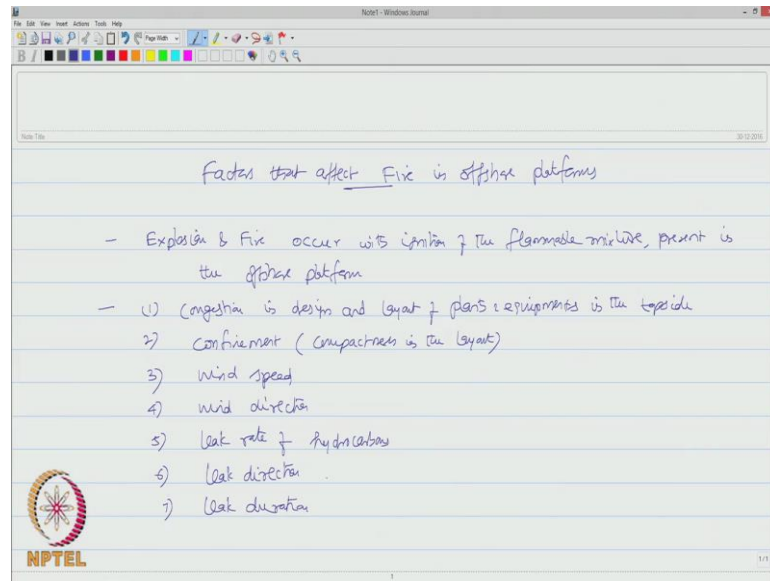 Note1 - Windows Journal
File Edit View Insert Actions Tools Help
Page Width
B I
Note Title
30-12-2016
Factors that affect Fire in offshore platforms
- Explosion & Fire occur with ignition of the flammable mixture, present in
the offshore platform
- (1) Congestion in design and layout of plants & equipments in the topside
2) Confinement (compactness in the layout)
3) Wind speed
4) Wind direction
5) Leak rate of hydrocarbons
6) Leak direction.
7) Leak duration
NPTEL
1/1
1